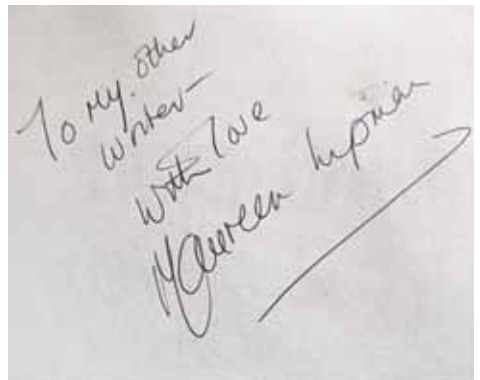 To My. other
writer –
With love
Maureen Lipman